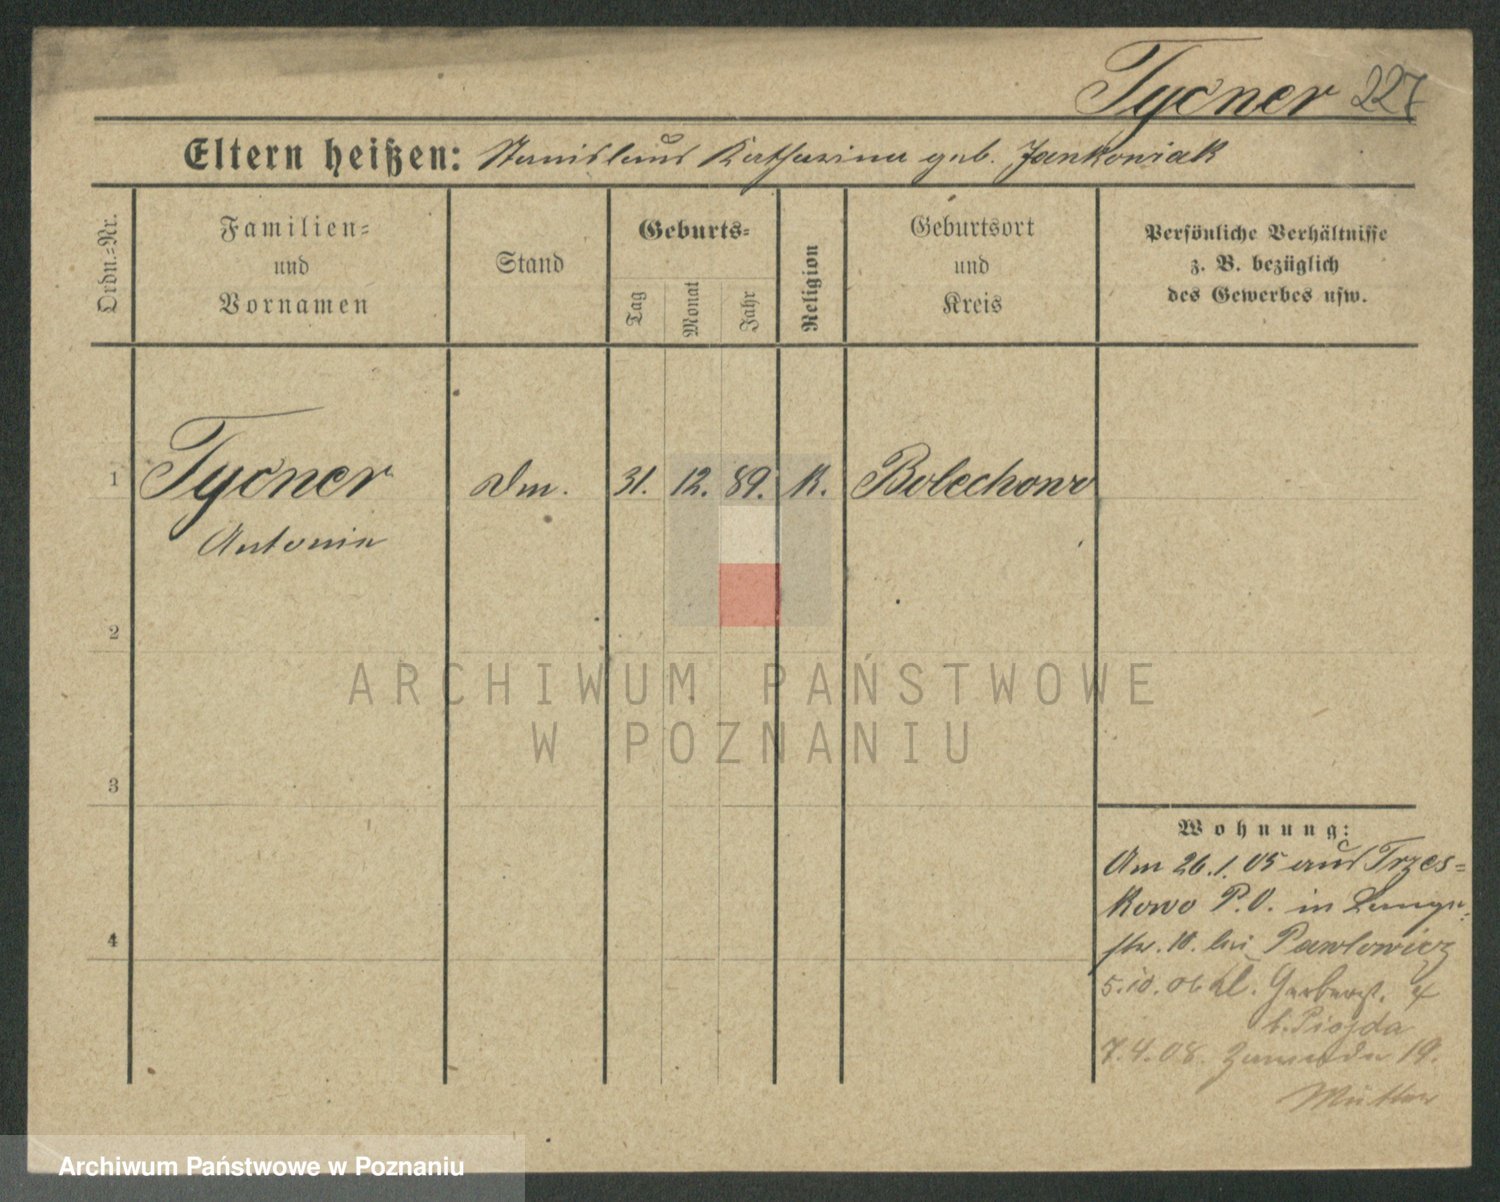 Tycner 227
Eltern heißen: Stanislaus Katharina geb. Jankowiak
Ordn.-Nr.
Familien-
und
Vornamen
Stand
Geburts-
Tag
Monat
Jahr
Religion
Geburtsort
und
Kreis
Persönliche Verhältnisse
z. B. bezüglich
des Gewerbes usw.
1 Tycner Dm. 31. 12. 89. K. Bolechowo
Antonie
2
ARCHIWUM PAŃSTWOWE
W POZNANIU
3
4
Wohnung:
Am 26.1.05 aus Trzes-
kowo P.O. in Lange-
str. 10. bei Pawlowicz
5.10.06 Kl. Gerberst. 4
b. Piojda
7.4.08. Zawade 19.
Mutter
Archiwum Państwowe w Poznaniu